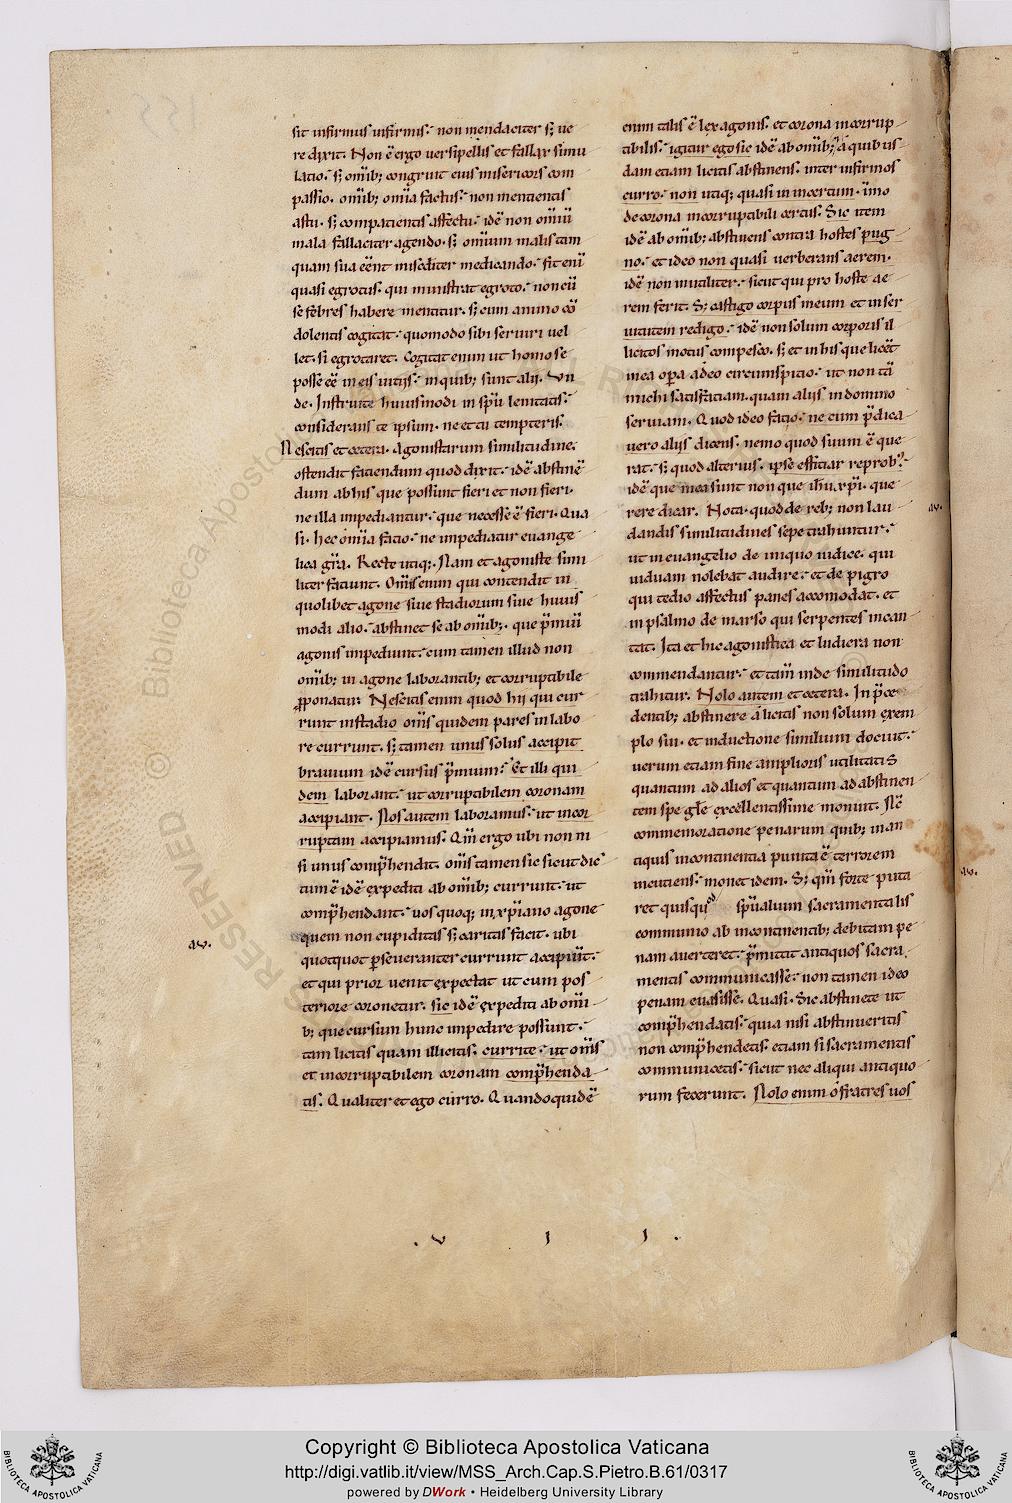 sit infirmus infirmis. non mendaciter s; ue
re dixit. Non ē ergo uersipellis et fallax simu
latio. s; om̄ib; congruit eius misericors com
passio. om̄ib; om̄ia factus. non mentientis
astu. s; compatientis affectu. idē non om̄iū
mala fallaciter agendo. s; om̄ium malis tam
quam sua eēnt misēditer medicando. fit enī
quasi egrotus. qui ministrat egroto. non cū
se febres habere mentitur. s; cum animo cō
dolentis cogitat. quomodo sibi seruiri uel
let. si egrotaret. Cogitat enim ut homo se
posse eē in eis uitiis. in quib; sunt alij. Vn
de. Instruite huiusmodi in sp̄u lenitatis.
considerans te ipsum. ne et tu tempteris.
Nescitis et cetera. Agonistarum similitudine.
ostendit faciendum quod dixit. idē abstinē
dum ab his que possunt fieri et non fieri.
ne illa impediantur. que necesse ē fieri. Qua
si. hec om̄ia facio. ne impediatur euange
lica gr̄a. Recte utiq;. Nam et agoniste simi
liter faciunt. Om̄is enim qui contendit in
quolibet agone siue stadiorum siue huius
modi alio. abstinet se ab om̄ib;. que p̄miū
agonis impediunt. cum tamen illud non
om̄ib; in agone laborantib; et corruptibile
proponatur. Nescitis enim quod hij qui cur
runt in stadio om̄s quidem pares in labo
re currunt. s; tamen unus solus accipit
brauium idē cursus p̄mium. Et illi qui
dem laborant. ut corruptibilem coronam
accipiant. Nos autem laboramus. ut incor
ruptam accipiamus. Qm̄ ergo ubi non ni
si unus comp̄hendit. om̄s tamen sic sicut dic
tum ē idē expediti ab om̄ib; currunt. ut
comp̄hendant. uos quoq; in xp̄iano agone
quem non cupiditas s; caritas facit. ubi
quotquot perseueranter currunt accipiūt.
et qui prior uenit expectat ut cum pos
teriore coronetur. sic idē expediti ab om̄i
b; que cursum hunc impedire possunt.
tam licitis quam illicitis. currite. ut om̄s
et incorruptibilem coronam comp̄henda
tis. Qualiter et ego curro. Quandoquidē
enim talis ē lex agonis. et corona incorrup
tibilis. igitur ego sic idē ab om̄ib; a quibus
dam etiam licitis abstinens. inter infirmos
curro. non utiq; quasi in incertum. īmo
de corona incorruptibili certus. Sic item
idē ab om̄ib; abstinens contra hostes pug
no. et ideo non quasi uerberans aerem.
idē non inutiliter. sicut qui pro hoste ae
rem ferit. S; castigo corpus meum et in ser
uitutem redigo. idē non solum corporis il
licitos motus compesco. s; et in his que licēt
mea opa adeo circumspicio. ut non tā
michi satisfaciam. quam aliis in domino
seruiam. Quod ideo facio. ne cum p̄dica
uero aliis dicens. nemo quod suum ē que
rat. s; quod alterius. ipse efficiar reprob'.
idē que mea sunt non que ih̄u xp̄i. que
rere dicar. Nota. quod de reb; non lau
dandis similitudines sepe trahuntur.
ut in euangelio de iniquo iudice. qui
uiduam nolebat audire. et de pigro
qui tedio affectus panes accomodat. et
in psalmo de marso qui serpentes incan
tat. Ita et hic agonistica et ludicra non
commendantur. et tam̄ inde similitudo
trahitur. Nolo autem et cetera. In p̄ce
dentib; abstinere a licitis non solum exem
plo sui. et inductione similium docuit.
uerum etiam fine amplioris utilitatis
quantum ad alios et quantum ad abstinen
tem spe gl̄e excellentissime monuit. Nc̄
commemoratione penarum quib; in an
tiquis incontinentia punita ē terrorem
incutiens. monet idem. S; qm̄ forte puta
ret quisquā sp̄ualium sacramentalis
communio ab incontinentib; debitam pe
nam auerteret. p̄mittit antiquos sacra
mentis communicasse. non tamen ideo
penam euasisse. Quasi. Sic abstinete ut
comp̄hendatis. quia nisi abstinueritis
non comp̄hendetis. etiam si sacramentis
communicetis. sicut nec aliqui antiquo
rum fecerunt. Nolo enim o fratres uos
av.
av.
av.
. v I I .
Copyright © Biblioteca Apostolica Vaticana
http://digi.vatlib.it/view/MSS_Arch.Cap.S.Pietro.B.61/0317
powered by DWork • Heidelberg University Library
BIBLIOTECA APOSTOLICA VATICANA
BIBLIOTECA APOSTOLICA VATICANA